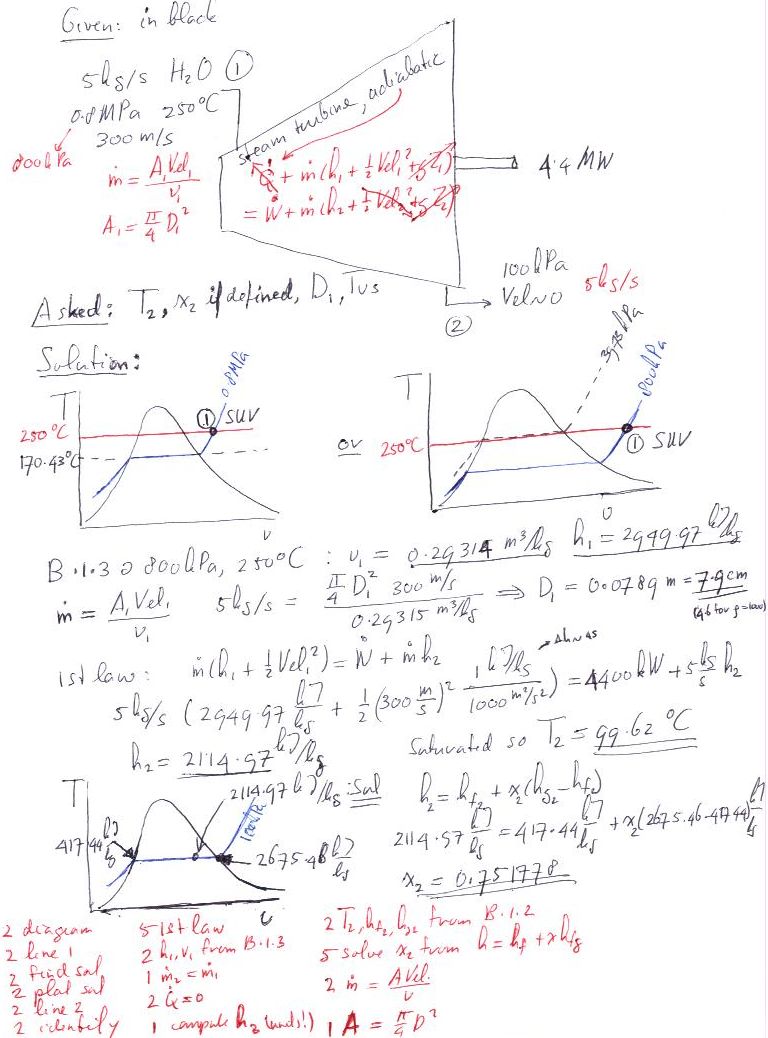 Given: in black
5kg/s H₂O ①
0.8MPa 250°C
300 m/s
800kPa
ṁ = A₁Vel₁/v₁
A₁ = π/4 D₁²
steam turbine, adiabatic
Q̇ + ṁ(h₁ + ½Vel₁² + gZ₁)
= Ẇ + ṁ(h₂ + ½Vel₂² + gZ₂)
4.4 MW
100kPa
Vel≈0 5kg/s
②
Asked: T₂, x₂ if defined, D₁, Tvs
Solution:
T
250°C
170.43°C
① SUV
0.8MPa
v
or
T
250°C
3975kPa
800kPa
① SUV
v
B.1.3 @ 800kPa, 250°C : v₁ = 0.29314 m³/kg h₁ = 2949.97 kJ/kg
ṁ = A₁Vel₁/v₁ 5kg/s = π/4 D₁² 300 m/s / 0.29315 m³/kg ⟹ D₁ = 0.0789 m = 7.9cm
1st law: ṁ(h₁ + ½Vel₁²) = Ẇ + ṁh₂
5kg/s (2949.97 kJ/kg + ½(300 m/s)² 1 kJ/kg / 1000 m²/s²) = 4400kW + 5 kg/s h₂
h₂ = 2114.97 kJ/kg
Saturated so T₂ = 99.62 °C
T
2114.97 kJ/kg: Sat
417.44 kJ/kg
100kPa
2675.46 kJ/kg
v
h₂ = hf₂ + x₂(hg₂ - hf₂)
2114.97 kJ/kg = 417.44 kJ/kg + x₂(2675.46-417.44) kJ/kg
x₂ = 0.751778
2 diagram
2 line 1
2 find sat
2 plot sat
2 line 2
2 identify
5 1st law
2 h₁,v₁ from B.1.3
1 ṁ₂ = ṁ₁
2 Q̇ = 0
1 compute h₂ (units!)
2 T₂, hf₂, hg₂ from B.1.2
5 solve x₂ from h = hf + x hfg
2 ṁ = AVel/v
1 A = π/4 D²